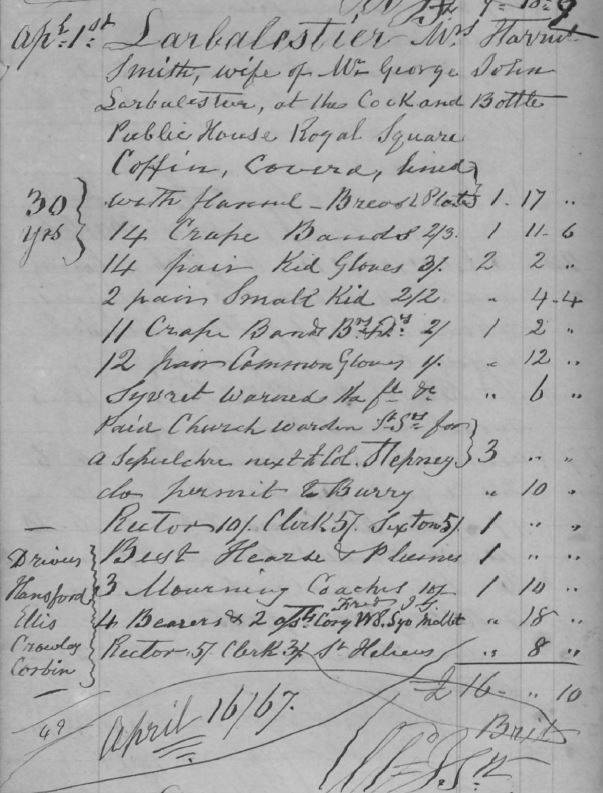 9
Apl 1st Larbalestier Mrs Harriet
Smith, wife of Mr George John
Larbalestier, at the Cock and Bottle
Public House Royal Square
Coffin, Coverd, lined
30 yrs with flannel - Breast Plate 1 - 17 "
14 Crape Bands 2/3. 1 11 - 6
14 pair Kid Gloves 3/. 2 2 "
2 pair Small Kid 2/2 " 4 - 4
11 Crape Bands 2/ 1 2 "
12 pair Common Gloves 1/. " 12 "
Syvret warned the " 6 "
Paid Church warden for
a Sepulchre next to Col. Stepney 3 " "
do permit to Burry " 10 "
Rector 10/. Clerk 5/. Sexton 5/. 1 " "
Drivers Best Hearse & Plumes 1 " "
Hansford 3 Mourning Coaches 10/ 1 10 "
Ellis 4 Bearers & 2 Cory Syv Mollet " 18 "
Crowley Rector. 5/. Clerk 3/. St Heliers " 8 "
Corbin
£ 16 - " 10
Brit
49 April 16/67.